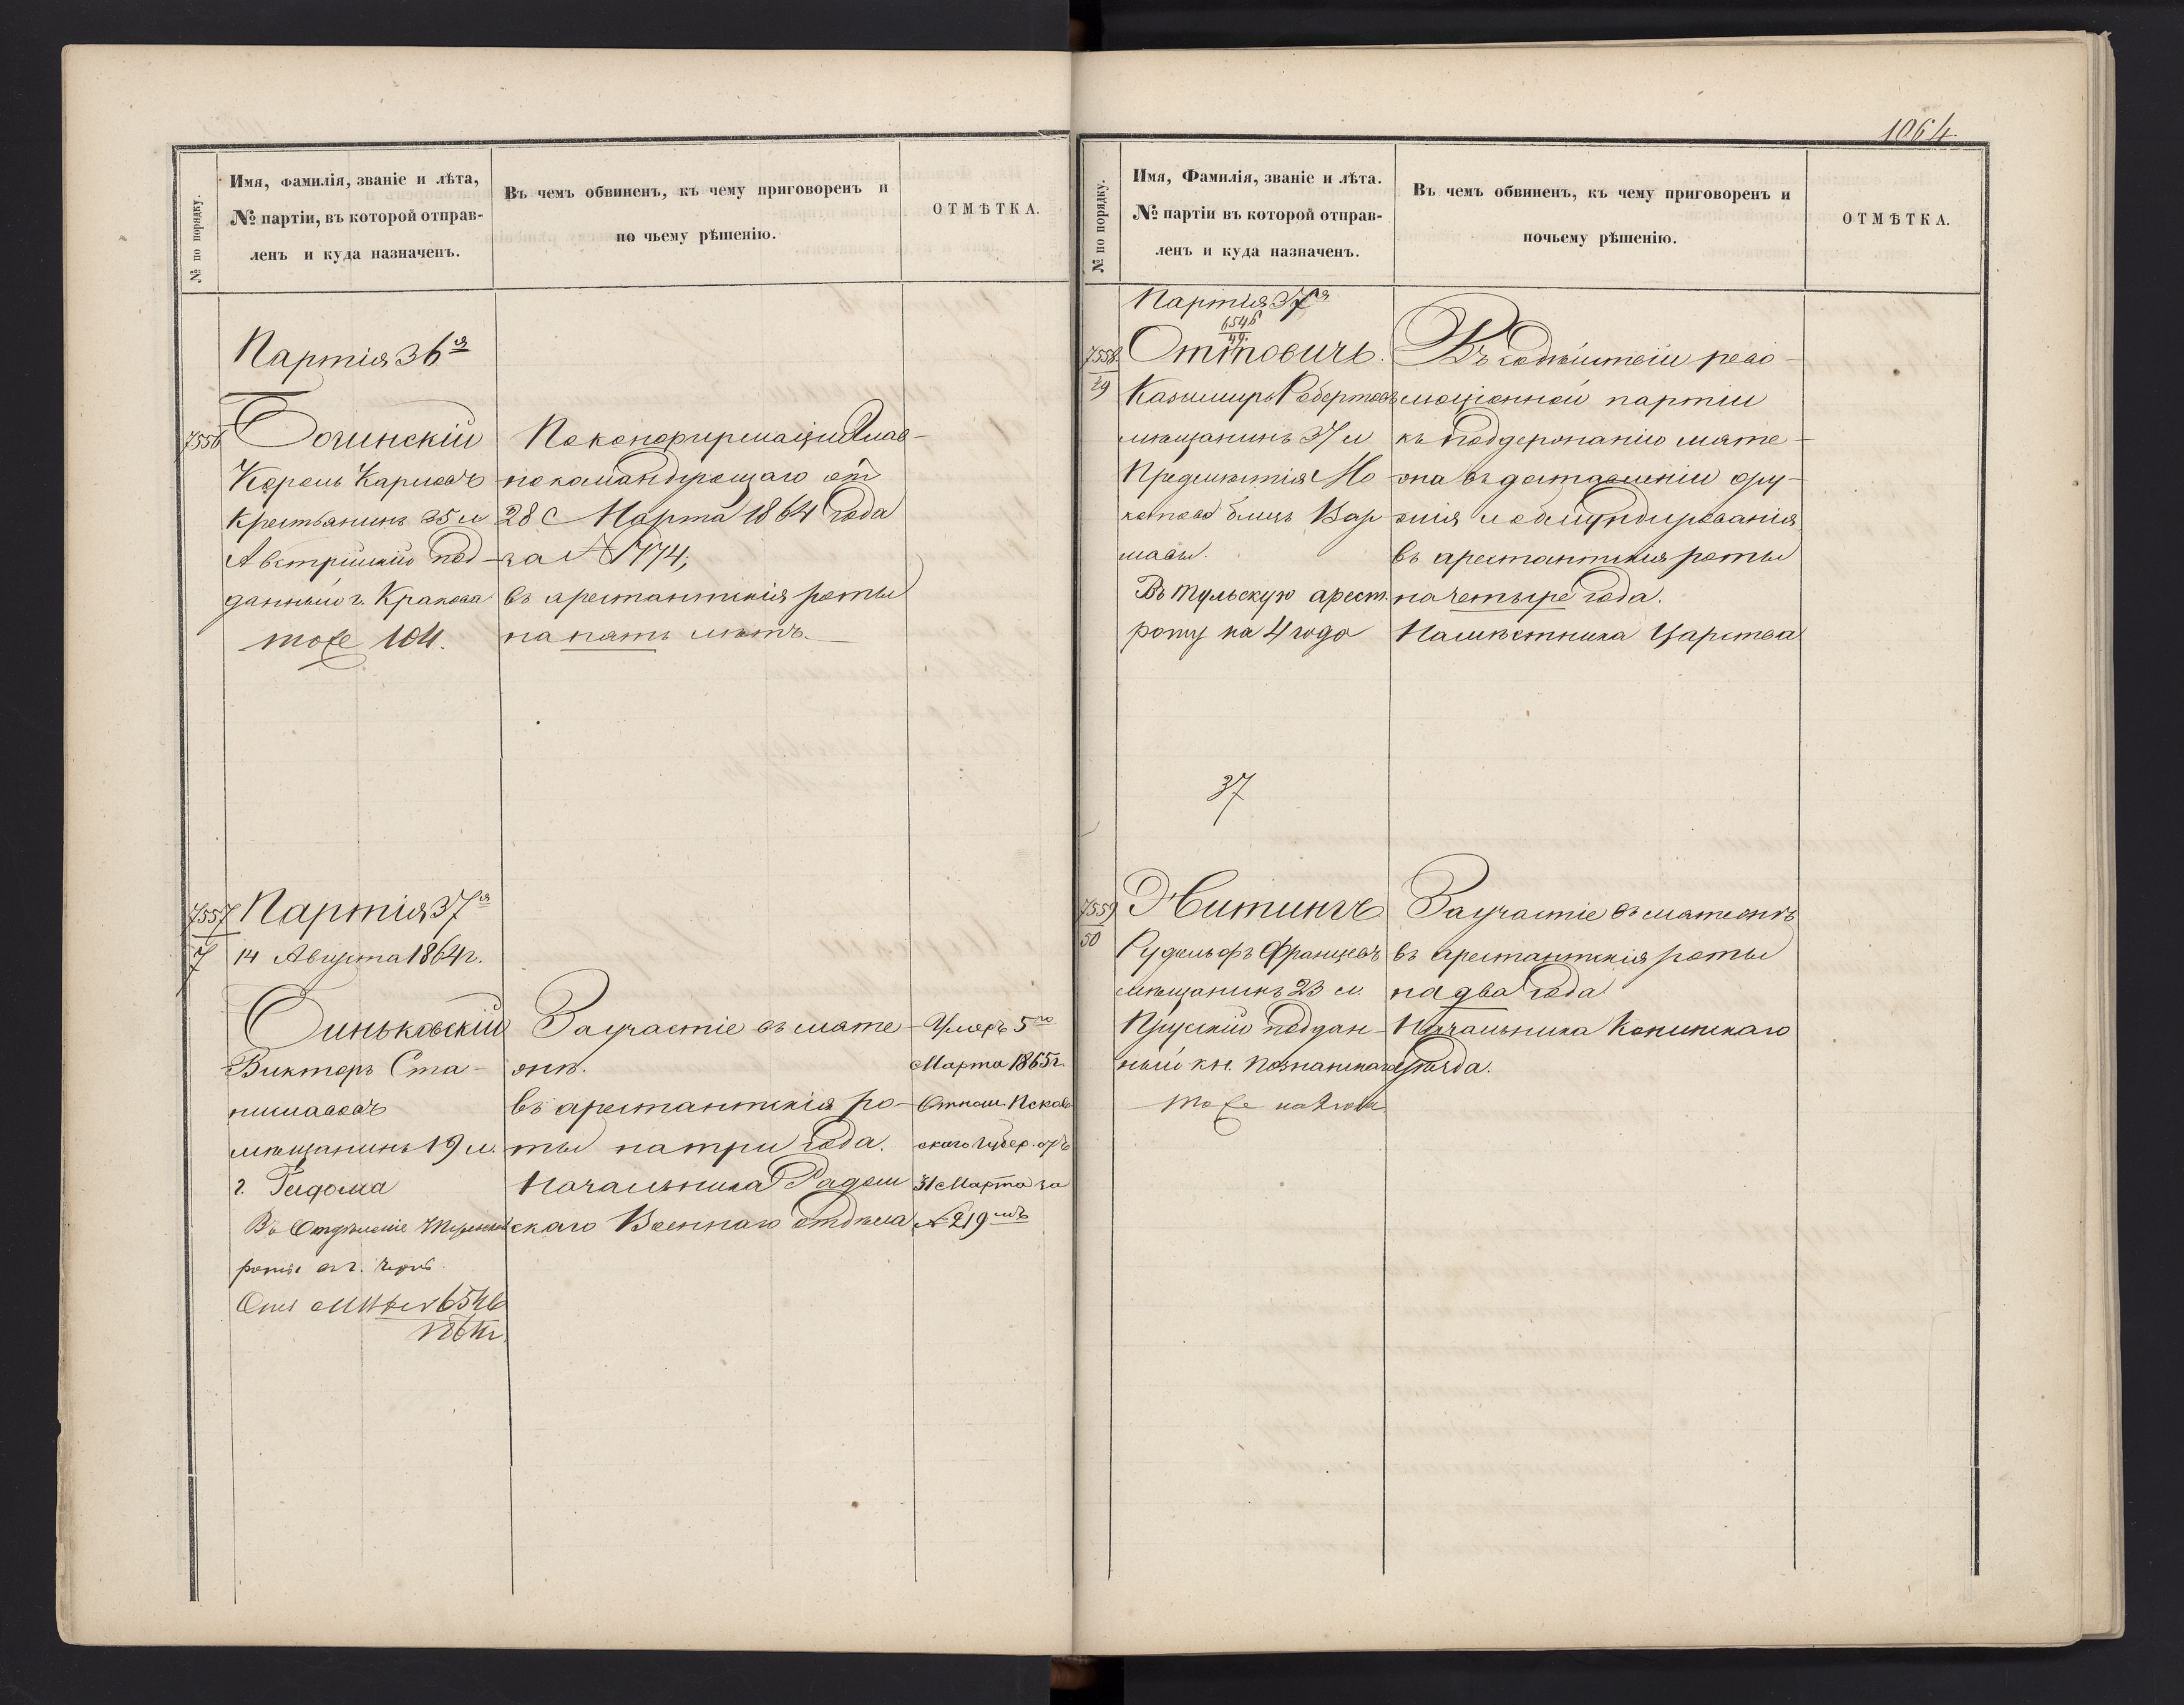 1064.
№ по порядку.
Имя, Фамилія, званіе и лѣта,
№ партіи, въ которой отправ-
ленъ и куда назначенъ.
Въ чемъ обвиненъ, къ чему приговоренъ и
по чьему рѣшенію.
ОТМѢТКА.
Партія 36я
7556
Бочинскій
Кароль Карловъ
Крестьянинъ 35 л
Австрійскій под-
данный г. Кракова
тоже
По конфирмаціи Глав-
нокомандующаго отъ
28 Марта 1864 года
за № 1774,
въ арестантскія роты
на пять лѣтъ.
7557
7
Партія 37я
14 Августа 1864 г.
Синьковскій
Викторъ Ста-
ниславовъ
мѣщанинъ 19 л.
г. Радома
Въ Отдѣленіе
роты въ г.
6546
1864 г.
За участіе въ мяте-
жѣ.
въ арестантскія ро-
ты на три года.
Начальника Радом
скаго Военнаго отдѣла
Умеръ 5го
Марта 1865 г.
Отнош. Псков
скаго Губер. отъ
31 Марта за
№ 219
№ по порядку.
Имя, Фамилія, званіе и лѣта.
№ партіи въ которой отправ-
ленъ и куда назначенъ.
Въ чемъ обвиненъ, къ чему приговоренъ и
почьему рѣшенію.
ОТМѢТКА.
Партія 37я
6546
49.
7558
49
Оттовичъ.
Казимиръ Робертовъ
мѣщанинъ 37 л
Предмѣстія Мо
котово близь Вар
шавы.
Въ Тульскую арест.
роту на 4 года
Въ содѣйствіи рево-
люціонной партіи
къ поддержанію мяте-
жа въ доставленіи ору-
жія и обмундированія
въ арестантскія роты
на четыре года.
Намѣстника Царства
37
7559
50
Житингъ
Рудольфъ Францовъ
мѣщанинъ 23 л.
Прусскій поддан-
ный кн. Познанскаго
тоже на 2 года
За участіе въ мятежѣ
въ арестантскія роты
на два года
Начальника Конинскаго
уѣзда.